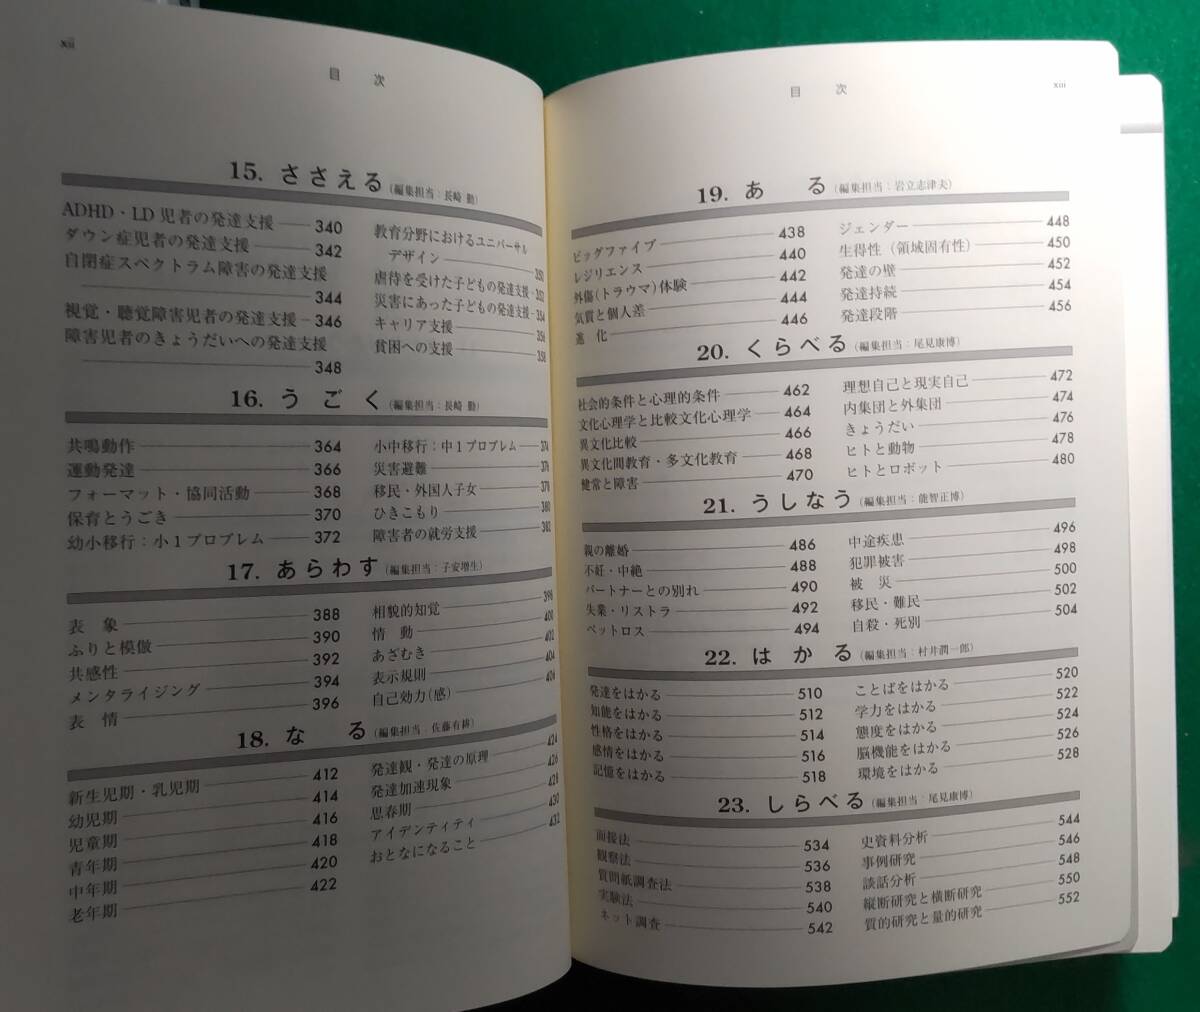 xii
目 次
15. ささえる (編集担当：長崎 勤)
ADHD・LD児者の発達支援 340
ダウン症児者の発達支援 342
自閉症スペクトラム障害の発達支援
344
視覚・聴覚障害児者の発達支援 346
障害児者のきょうだいへの発達支援
348
教育分野におけるユニバーサル
デザイン 350
虐待を受けた子どもの発達支援 352
災害にあった子どもの発達支援 354
キャリア支援 356
貧困への支援 358
16. うごく (編集担当：長崎 勤)
共鳴動作 364
運動発達 366
フォーマット・協同活動 368
保育とうごき 370
幼小移行：小1プロブレム 372
小中移行：中1プロブレム 374
災害避難 376
移民・外国人子女 378
ひきこもり 380
障害者の就労支援 382
17. あらわす (編集担当：子安増生)
表 象 388
ふりと模倣 390
共感性 392
メンタライジング 394
表 情 396
相貌的知覚 398
情 動 400
あざむき 402
表示規則 404
自己効力(感) 406
18. な る (編集担当：佐藤有耕)
新生児期・乳児期 412
幼児期 414
児童期 416
青年期 418
中年期 420
老年期 422
発達観・発達の原理 424
発達加速現象 426
思春期 428
アイデンティティ 430
おとなになること 432
目 次
xiii
19. あ る (編集担当：岩立志津夫)
ビッグファイブ 438
レジリエンス 440
外傷(トラウマ)体験 442
気質と個人差 444
進 化 446
ジェンダー 448
生得性（領域固有性） 450
発達の壁 452
発達持続 454
発達段階 456
20. くらべる (編集担当：尾見康博)
社会的条件と心理的条件 462
文化心理学と比較文化心理学 464
異文化比較 466
異文化間教育・多文化教育 468
健常と障害 470
理想自己と現実自己 472
内集団と外集団 474
きょうだい 476
ヒトと動物 478
ヒトとロボット 480
21. うしなう (編集担当：能智正博)
親の離婚 486
不妊・中絶 488
パートナーとの別れ 490
失業・リストラ 492
ペットロス 494
中途疾患 496
犯罪被害 498
被 災 500
移民・難民 502
自殺・死別 504
22. はかる (編集担当：村井潤一郎)
発達をはかる 510
知能をはかる 512
性格をはかる 514
感情をはかる 516
記憶をはかる 518
ことばをはかる 520
学力をはかる 522
態度をはかる 524
脳機能をはかる 526
環境をはかる 528
23. しらべる (編集担当：尾見康博)
面接法 534
観察法 536
質問紙調査法 538
実験法 540
ネット調査 542
史資料分析 544
事例研究 546
談話分析 548
縦断研究と横断研究 550
質的研究と量的研究 552